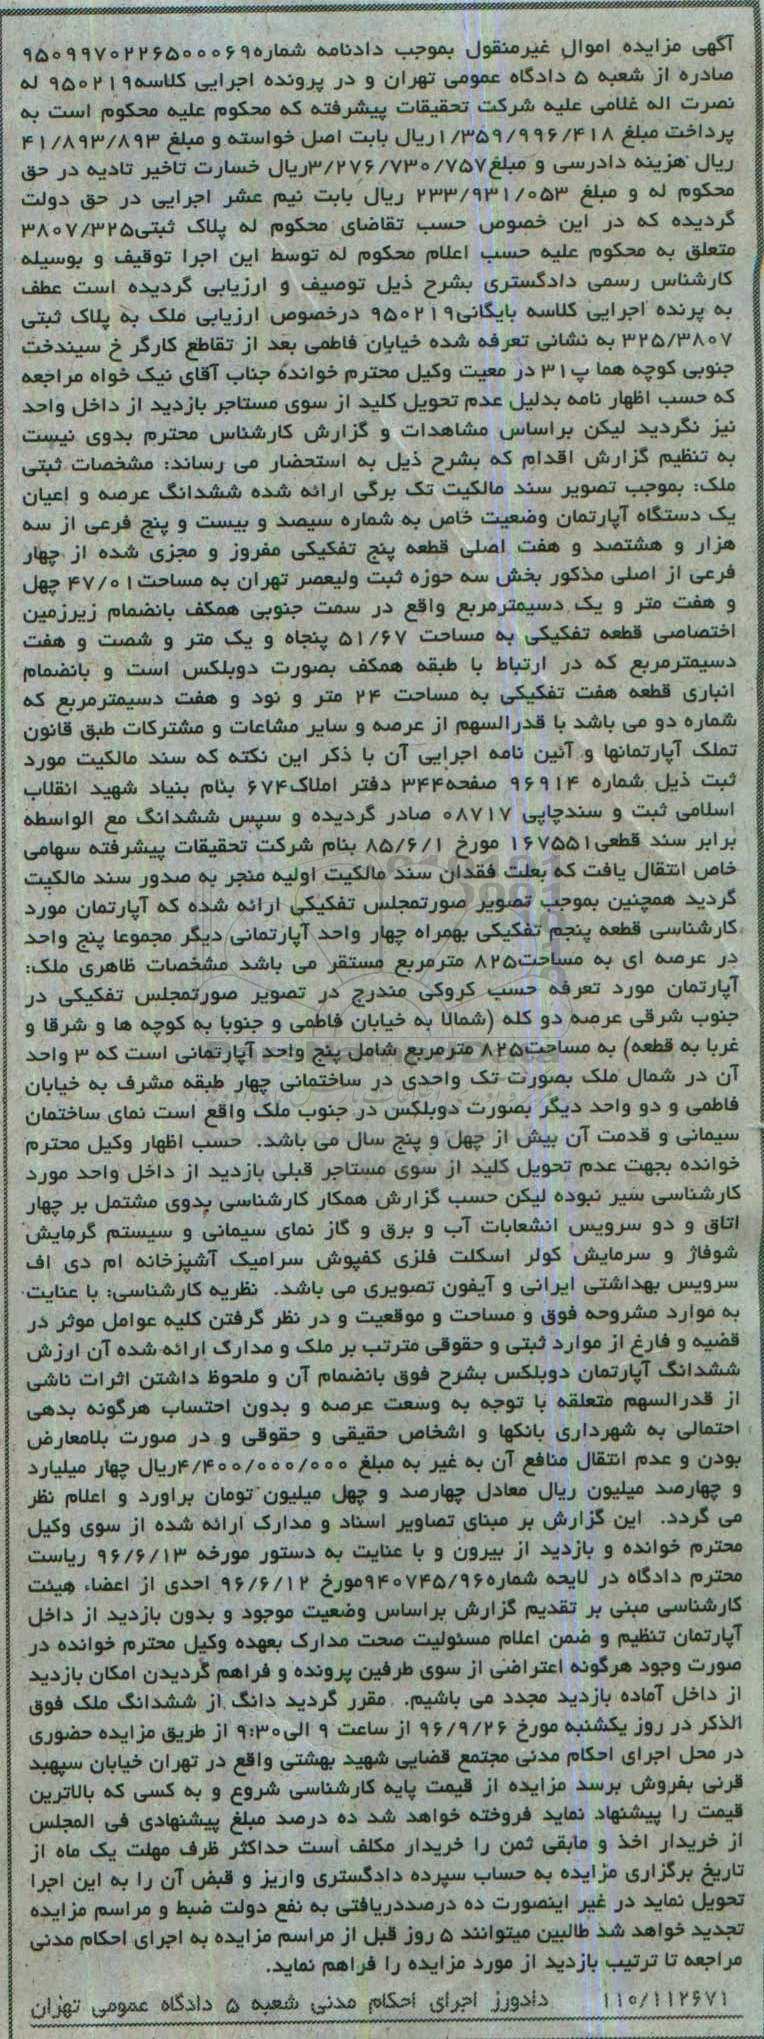 آگهی مزایده اموال غیرمنقول بموجب دادنامه شماره۹۵۰۹۹۷۰۲۲۶۵۰۰۰۶۹
صادره از شعبه ۵ دادگاه عمومی تهران و در پرونده اجرایی کلاسه۹۵۰۲۱۹ له
نصرت اله غلامی علیه شرکت تحقیقات پیشرفته که محکوم علیه محکوم است به
پرداخت مبلغ ۱/۳۵۹/۹۹۶/۴۱۸ریال بابت اصل خواسته و مبلغ ۴۱/۸۹۳/۸۹۳
ریال هزینه دادرسی و مبلغ۳/۲۷۶/۷۳۰/۷۵۷ریال خسارت تاخیر تادیه در حق
محکوم له و مبلغ ۲۳۳/۹۳۱/۰۵۳ ریال بابت نیم عشر اجرایی در حق دولت
گردیده که در این خصوص حسب تقاضای محکوم له پلاک ثبتی۳۸۰۷/۳۲۵
متعلق به محکوم علیه حسب اعلام محکوم له توسط این اجرا توقیف و بوسیله
کارشناس رسمی دادگستری بشرح ذیل توصیف و ارزیابی گردیده است عطف
به پرنده اجرایی کلاسه بایگانی۹۵۰۲۱۹ درخصوص ارزیابی ملک به پلاک ثبتی
۳۲۵/۳۸۰۷ به نشانی تعرفه شده خیابان فاطمی بعد از تقاطع کارگر خ سیندخت
جنوبی کوچه هما پ۳۱ در معیت وکیل محترم خوانده جناب آقای نیک خواه مراجعه
که حسب اظهار نامه بدلیل عدم تحویل کلید از سوی مستاجر بازدید از داخل واحد
نیز نگردید لیکن براساس مشاهدات و گزارش کارشناس محترم بدوی نیست
به تنظیم گزارش اقدام که بشرح ذیل به استحضار می رساند: مشخصات ثبتی
ملک: بموجب تصویر سند مالکیت تک برگی ارائه شده ششدانگ عرصه و اعیان
یک دستگاه آپارتمان وضعیت خاص به شماره سیصد و بیست و پنج فرعی از سه
هزار و هشتصد و هفت اصلی قطعه پنج تفکیکی مفروز و مجزی شده از چهار
فرعی از اصلی مذکور بخش سه حوزه ثبت ولیعصر تهران به مساحت۴۷/۰۱ چهل
و هفت متر و یک دسیمترمربع واقع در سمت جنوبی همکف بانضمام زیرزمین
اختصاصی قطعه تفکیکی به مساحت ۵۱/۶۷ پنجاه و یک متر و شصت و هفت
دسیمترمربع که در ارتباط با طبقه همکف بصورت دوبلکس است و بانضمام
انباری قطعه هفت تفکیکی به مساحت ۲۴ متر و نود و هفت دسیمترمربع که
شماره دو می باشد با قدرالسهم از عرصه و سایر مشاعات و مشترکات طبق قانون
تملک آپارتمانها و آئین نامه اجرایی آن با ذکر این نکته که سند مالکیت مورد
ثبت ذیل شماره ۹۶۹۱۴ صفحه۳۴۴ دفتر املاک۶۷۴ بنام بنیاد شهید انقلاب
اسلامی ثبت و سندچاپی ۰۸۷۱۷ صادر گردیده و سپس ششدانگ مع الواسطه
برابر سند قطعی۱۶۷۵۵۱ مورخ ۸۵/۶/۱ بنام شرکت تحقیقات پیشرفته سهامی
خاص انتقال یافت که بعلت فقدان سند مالکیت اولیه منجر به صدور سند مالکیت
گردید همچنین بموجب تصویر صورتمجلس تفکیکی ارائه شده که آپارتمان مورد
کارشناسی قطعه پنجم تفکیکی بهمراه چهار واحد آپارتمانی دیگر مجموعا پنج واحد
در عرصه ای به مساحت۸۲۵ مترمربع مستقر می باشد مشخصات ظاهری ملک:
آپارتمان مورد تعرفه حسب کروکی مندرج در تصویر صورتمجلس تفکیکی در
جنوب شرقی عرصه دو کله (شمالا به خیابان فاطمی و جنوبا به کوچه ها و شرقا و
غربا به قطعه) به مساحت۸۲۵ مترمربع شامل پنج واحد آپارتمانی است که ۳ واحد
آن در شمال ملک بصورت تک واحدی در ساختمانی چهار طبقه مشرف به خیابان
فاطمی و دو واحد دیگر بصورت دوبلکس در جنوب ملک واقع است نمای ساختمان
سیمانی و قدمت آن بیش از چهل و پنج سال می باشد. حسب اظهار وکیل محترم
خوانده بجهت عدم تحویل کلید از سوی مستاجر قبلی بازدید از داخل واحد مورد
کارشناسی سیر نبوده لیکن حسب گزارش همکار کارشناسی بدوی مشتمل بر چهار
اتاق و دو سرویس انشعابات آب و برق و گاز نمای سیمانی و سیستم گرمایش
شوفاژ و سرمایش کولر اسکلت فلزی کفپوش سرامیک آشپزخانه ام دی اف
سرویس بهداشتی ایرانی و آیفون تصویری می باشد. نظریه کارشناسی: با عنایت
به موارد مشروحه فوق و مساحت و موقعیت و در نظر گرفتن کلیه عوامل موثر در
قضیه و فارغ از موارد ثبتی و حقوقی مترتب بر ملک و مدارک ارائه شده آن ارزش
ششدانگ آپارتمان دوبلکس بشرح فوق بانضمام آن و ملحوظ داشتن اثرات ناشی
از قدرالسهم متعلقه با توجه به وسعت عرصه و بدون احتساب هرگونه بدهی
احتمالی به شهرداری بانکها و اشخاص حقیقی و حقوقی و در صورت بلامعارض
بودن و عدم انتقال منافع آن به غیر به مبلغ ۴/۴۰۰/۰۰۰/۰۰۰ریال چهار میلیارد
و چهارصد میلیون ریال معادل چهارصد و چهل میلیون تومان براورد و اعلام نظر
می گردد. این گزارش بر مبنای تصاویر اسناد و مدارک ارائه شده از سوی وکیل
محترم خوانده و بازدید از بیرون و با عنایت به دستور مورخه ۹۶/۶/۱۳ ریاست
محترم دادگاه در لایحه شماره۹۴۰۷۴۵/۹۶مورخ ۹۶/۶/۱۲ احدی از اعضاء هیئت
کارشناسی مبنی بر تقدیم گزارش براساس وضعیت موجود و بدون بازدید از داخل
آپارتمان تنظیم و ضمن اعلام مسئولیت صحت مدارک بعهده وکیل محترم خوانده در
صورت وجود هرگونه اعتراضی از سوی طرفین پرونده و فراهم گردیدن امکان بازدید
از داخل آماده بازدید مجدد می باشیم. مقرر گردید دانگ از ششدانگ ملک فوق
الذکر در روز یکشنبه مورخ ۹۶/۹/۲۶ از ساعت ۹ الی۹:۳۰ از طریق مزایده حضوری
در محل اجرای احکام مدنی مجتمع قضایی شهید بهشتی واقع در تهران خیابان سپهبد
قرنی بفروش برسد مزایده از قیمت پایه کارشناسی شروع و به کسی که بالاترین
قیمت را پیشنهاد نماید فروخته خواهد شد ده درصد مبلغ پیشنهادی فی المجلس
از خریدار اخذ و مابقی ثمن را خریدار مکلف است حداکثر ظرف مهلت یک ماه از
تاریخ برگزاری مزایده به حساب سپرده دادگستری واریز و قبض آن را به این اجرا
تحویل نماید در غیر اینصورت ده درصددریافتی به نفع دولت ضبط و مراسم مزایده
تجدید خواهد شد طالبین میتوانند ۵ روز قبل از مراسم مزایده به اجرای احکام مدنی
مراجعه تا ترتیب بازدید از مورد مزایده را فراهم نماید.
۱۱۰/۱۱۲۶۷۱ دادورز اجرای احکام مدنی شعبه ۵ دادگاه عمومی تهران